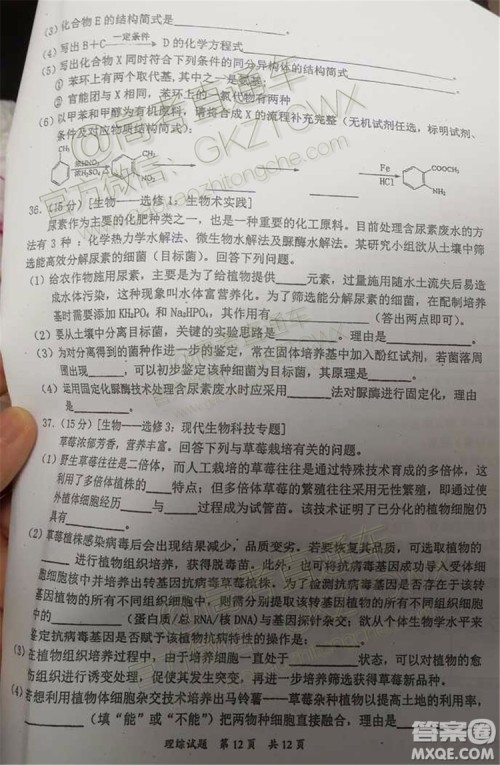 (3)化合物E的结构简式是
(4)写出B+C 一定条件 D的化学方程式
(5)写出化合物X同时符合下列条件的同分异构体的结构简式
① 苯环上有两个取代基,其中之一是氨基;
② 官能团与X相同,苯环上的一氯代物有两种
(6)以甲苯和甲醇为有机原料,请将合成X的流程补充完整(无机试剂任选,标明试剂、
条件及对应物质结构简式):
CH₃ CH₃ NO₂ Fe HCl COOCH₃ NH₂
36.(15分)[生物——选修1:生物术实践]
尿素作为主要的化肥种类之一,也是一种重要的化工原料。目前处理含尿素废水的方
法有3种:化学热力学水解法、微生物水解法及脲酶水解法。某研究小组欲从土壤中筛
选能高效分解尿素的细菌(目标菌)。回答下列问题。
(1)给农作物施用尿素,主要是为了给植物提供 元素,过量施用随水土流失后易造
成水体污染,这种现象叫水体富营养化。为了筛选能分解尿素的细菌,在配制培养
基时需要添加KH₂PO₄和Na₂HPO₄,其作用有 (答出两点即可)。
(2)要从土壤中分离目标菌,关键的实验思路是 。理由是
(3)为对分离得到的菌种作进一步的鉴定,常在固体培养基中加入酚红试剂,若菌落周
围出现 ,可以初步鉴定该种细菌为目标菌,其原理是
(4)运用固定化脲酶技术处理含尿素废水时应采用 法对脲酶进行固定化,理由
是
37.(15分)[生物——选修3:现代生物科技专题]
草莓浓郁芳香,营养丰富。回答下列与草莓栽培有关的问题。
(1)野生草莓往往是二倍体,而人工栽培的草莓往往是通过特殊技术育成的多倍体,这
利用了多倍体植株的 特点;但多倍体草莓的繁殖往往采用无性繁殖,即通过使
外植体细胞经历 与 过程成为试管苗。该技术证明了已分化的植物细胞仍
具有 。
(2)草莓植株感染病毒后会出现结果减少,品质变劣。若要恢复其品质,可选取植物的
进行植物组织培养,获得脱毒苗。此外,可将抗病毒基因成功导入受体细
胞细胞核中并培养出转基因抗病毒草莓植株。为了检测抗病毒基因是否存在于该转
基因植物的所有不同组织细胞中,则需分别提取该转基因植物的所有不同组织细胞
中的 (蛋白质/总RNA/核DNA)与基因探针杂交;欲从个体生物学水平来
鉴定抗病毒基因是否赋予该植物抗病特性的操作是:
(3)在植物组织培养过程中,由于培养细胞一直处于 状态,可以对植物的愈
伤组织进行诱变处理,促使其发生突变,再进一步培养筛选获得草莓新品种。
(4)若想利用植物体细胞杂交技术培养出马铃薯——草莓杂种植株以提高土地的利用率,
(填“能”或“不能”)把两物种细胞直接融合,理由是
理综试题 第12页 共12页
@高考直通车
官方微信:GKZTCWX
答案圈
MXQE.COM